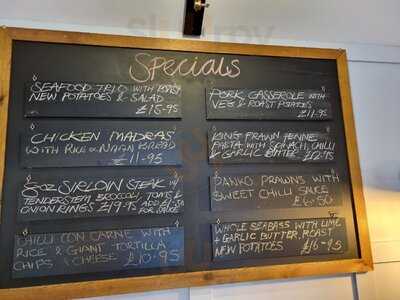 Specials
SEAFOOD TRIO WITH ROAST
NEW POTATOES & SALAD
£15-95
CHICKEN MADRAS
WITH RICE & NAAN BREAD
£11-95
8oz SIRLOIN STEAK W/
TENDERSTEM BROCCOLI, TOMS &
ONION RINGS £19.95 ADD £1.50
FOR SAUCE
CHILLI CON CARNE WITH
RICE & GIANT TORTILLA
CHIPS & CHEESE £10-95
PORK CASSEROLE WITH
VEG & ROAST POTATOES
£11-95
KING PRAWN PENNE
PASTA WITH SPINACH, CHILLI
& GARLIC BUTTER £12-95
PANKO PRAWNS WITH
SWEET CHILLI SAUCE
£6-50
WHOLE SEABASS WITH LIME
+ GARLIC BUTTER, ROAST
NEW POTATOES £16-95